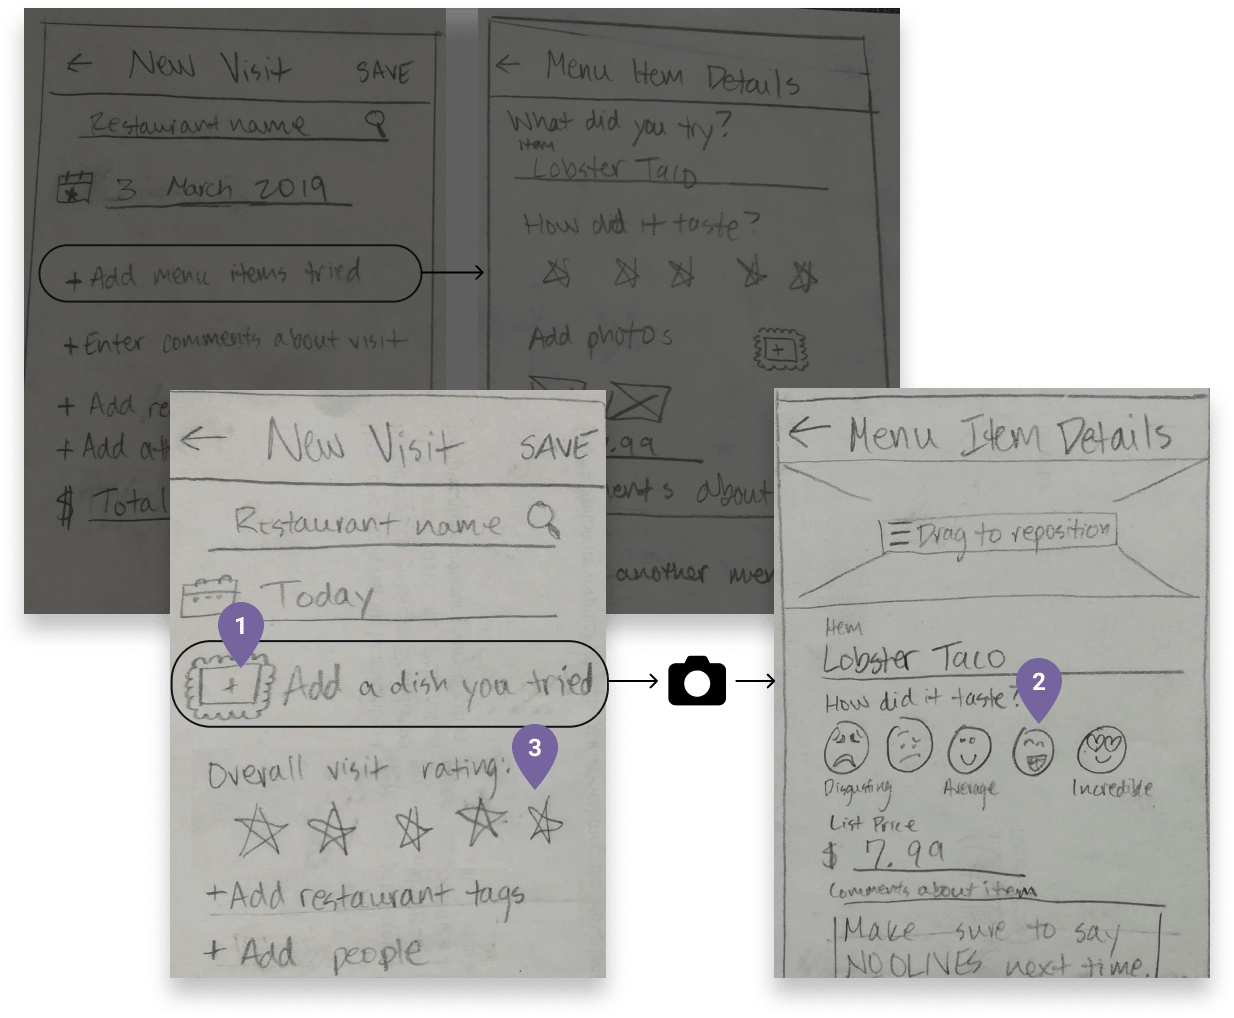 ← New Visit SAVE
Restaurant name
3 March 2019
+ Add menu items tried
+ Enter comments about visit
+ Add re
+ Add
$ Total
← Menu Item Details
What did you try?
item
Lobster Taco
How did it taste?
Add photos
+
.99
about
another
← New Visit SAVE
Restaurant name
Today
1
+ Add a dish you tried
3
Overall visit rating:
+ Add restaurant tags
+ Add people
← Menu Item Details
Drag to reposition
Item
Lobster Taco
2
How did it taste?
Disgusting Average Incredible
List Price
$ 7.99
Comments about item
Make sure to say
NO OLIVES next time.